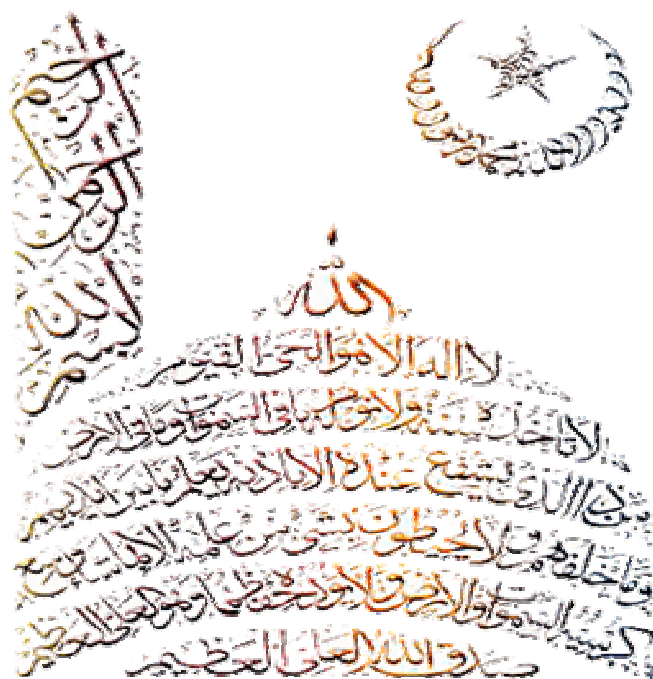 بسم الله الرحمن الرحيم
الله
لا اله الا هو الحي القيوم
لا تاخذه سنة ولا نوم له ما في السموات وما في الارض
من ذا الذي يشفع عنده الا باذنه يعلم ما بين ايديهم
وما خلفهم ولا يحيطون بشئ من علمه الا بما شاء وسع
كرسيه السموات والارض ولا يوده حفظهما وهو العلي العظيم
صدق الله العلي العظيم